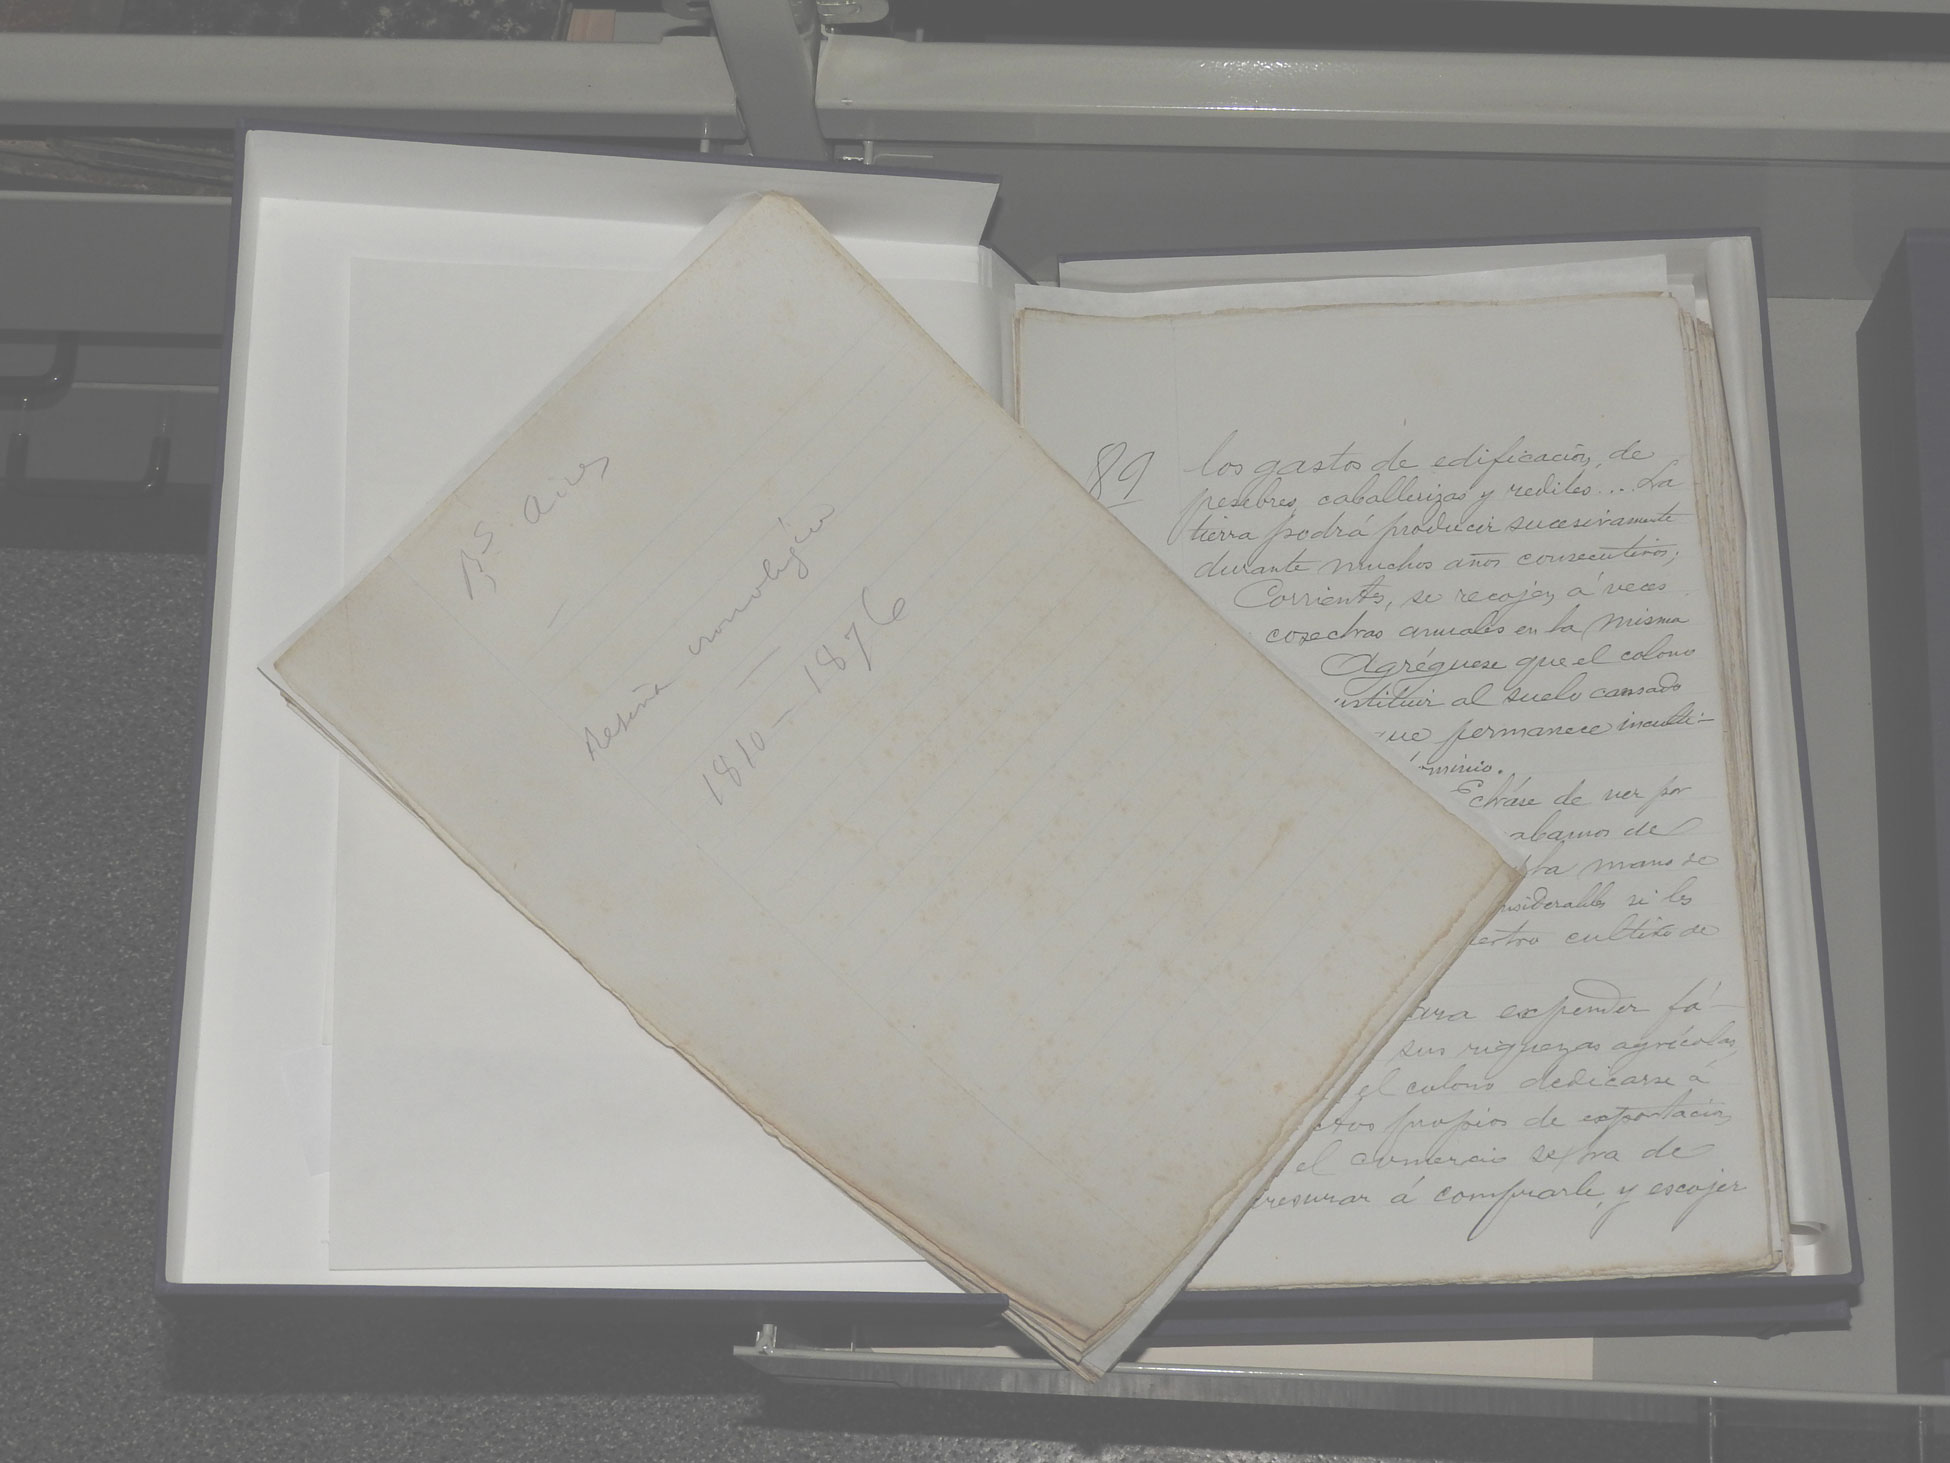 Bs. Aires
Reseña cronológica
1810-1876
89
los gastos de edificación, de
pesebres, caballerizas y rediles... La
tierra podrá producir sucesivamente
durante muchos años consecutivos;
Corrientes, se recojen á veces
cosechas anuales en la misma
Agréguese que el colono
al suelo cansado
que permanece inculti-
minio.
Echáse de ver por
abamos de
la mano de
nsiderables si les
cultivo de
para expender fá-
sus riquezas agrícolas,
el colono dedicarse á
ctos propios de exportación,
el comercio de
resurar á comprarle, y escojer